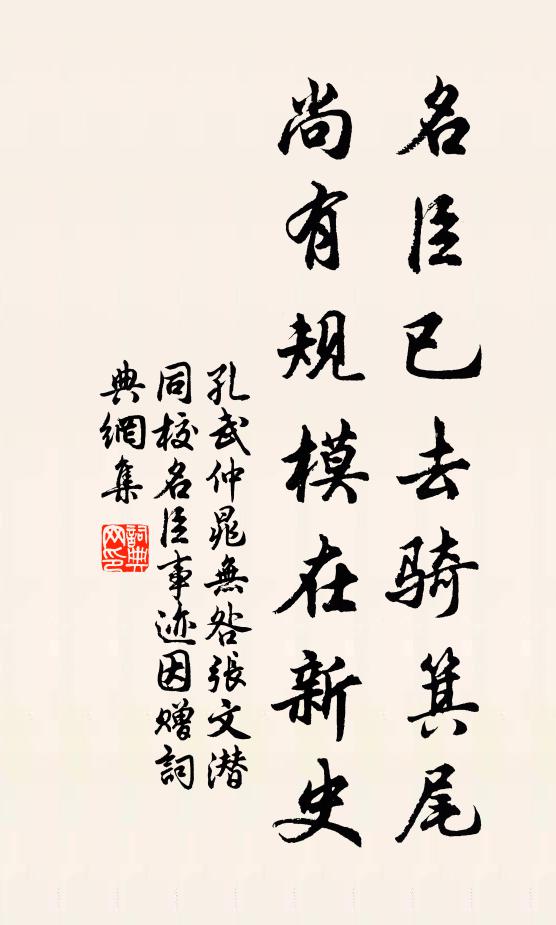 名臣已去骑箕尾
尚有规模在新史
孔武仲晁無咎張文潜
同校名臣事迹因赠詞
典網集
詞典网印